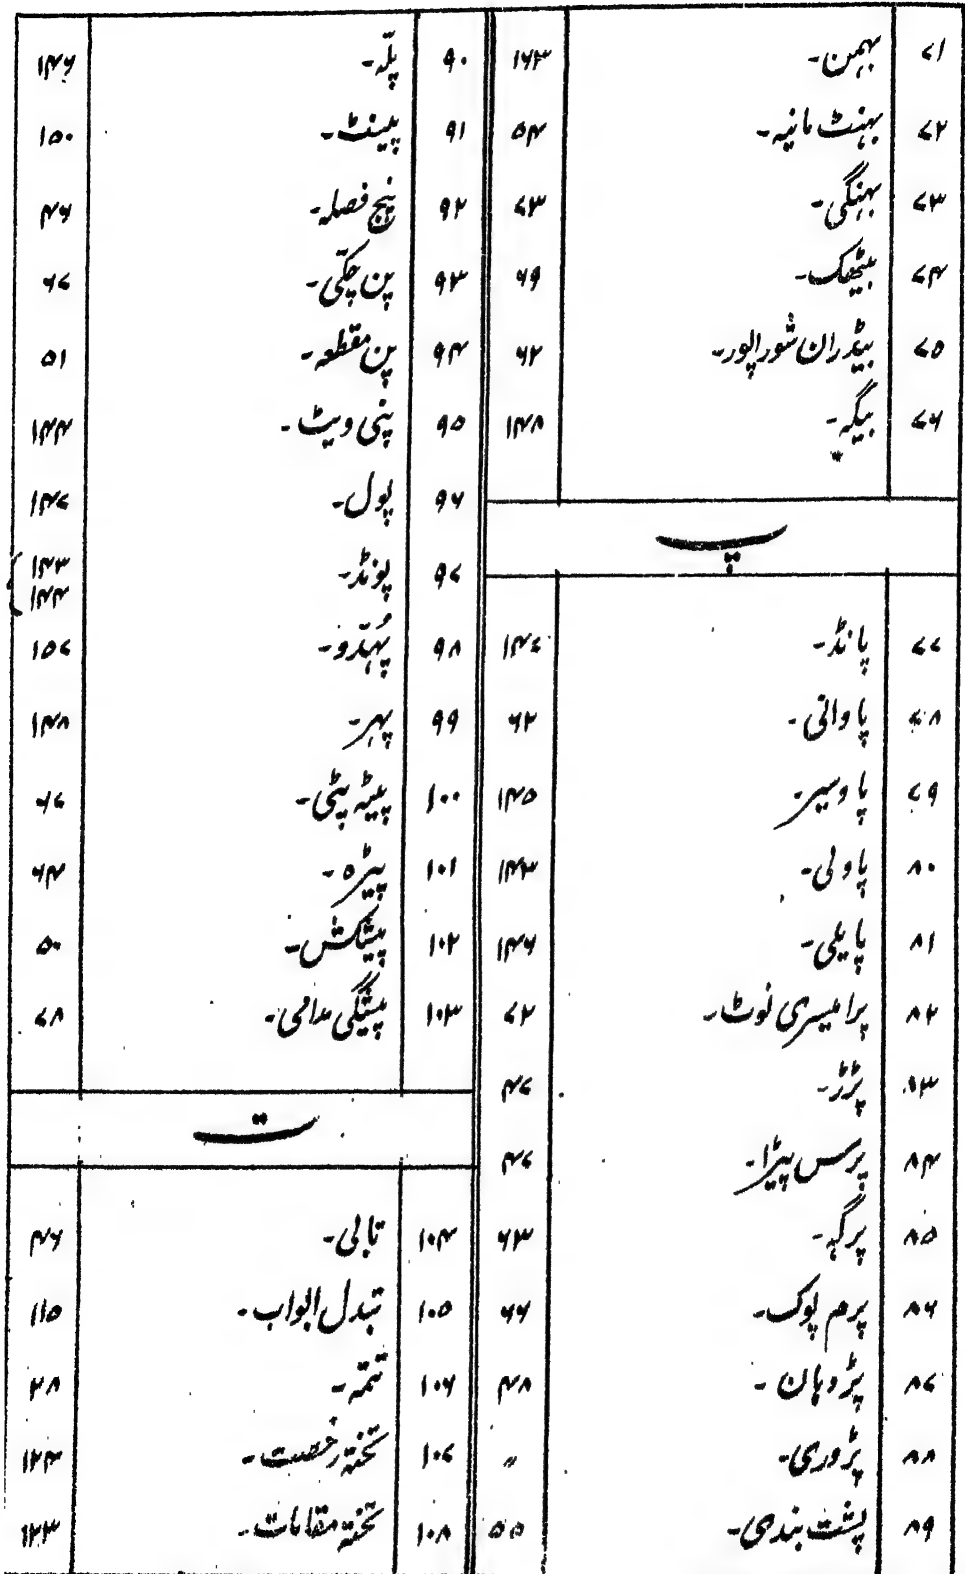 ۷۱ بہمن۔ ۱۶۳
۷۲ بہنٹ مانیہ۔ ۵۴
۷۳ بہنگی۔ ۷۳
۷۴ بیٹھک۔ ۶۹
۷۵ بیڈران شوراپور۔ ۶۲
۷۶ بیگہ۔ ۱۴۸
پ
۷۷ پانڈ۔ ۱۴۷
۷۸ پاواتی۔ ۶۲
۷۹ پاوسیر۔ ۱۴۵
۸۰ پاولی۔ ۱۴۳
۸۱ پایلی۔ ۱۴۶
۸۲ پرامیسری نوٹ۔ ۷۲
۸۳ پڑڑ۔ ۴۷
۸۴ پرس پیڑا۔ ۴۷
۸۵ پرگہہ۔ ۶۳
۸۶ پرم پوک۔ ۶۶
۸۷ پڑوہان۔ ۴۸
۸۸ پڑوری۔ ״
۸۹ پشت بندی۔ ۵۵
۹۰ پلّہ۔ ۱۴۶
۹۱ پینٹ۔ ۱۵۰
۹۲ پنچ فصلہ۔ ۴۶
۹۳ پن چکّی۔ ۶۷
۹۴ پن مقطعہ۔ ۵۱
۹۵ پنی ویٹ۔ ۱۴۴
۹۶ پول۔ ۱۴۷
۹۷ پونڈ۔ ۱۴۳ ۱۴۴
۹۸ پُہتّدو۔ ۱۵۷
۹۹ پہر۔ ۱۴۸
۱۰۰ پیٹہ پٹی۔ ۶۷
۱۰۱ پیڑہ۔ ۶۴
۱۰۲ پیشکش۔ ۵۰
۱۰۳ پیشگی مدامی۔ ۷۸
ت
۱۰۴ تالی۔ ۴۶
۱۰۵ تبدل ابواب۔ ۱۱۵
۱۰۶ تتمّہ۔ ۲۸
۱۰۷ تختہ رخصت۔ ۱۲۴
۱۰۸ تختہ مقامات۔ ۱۲۳